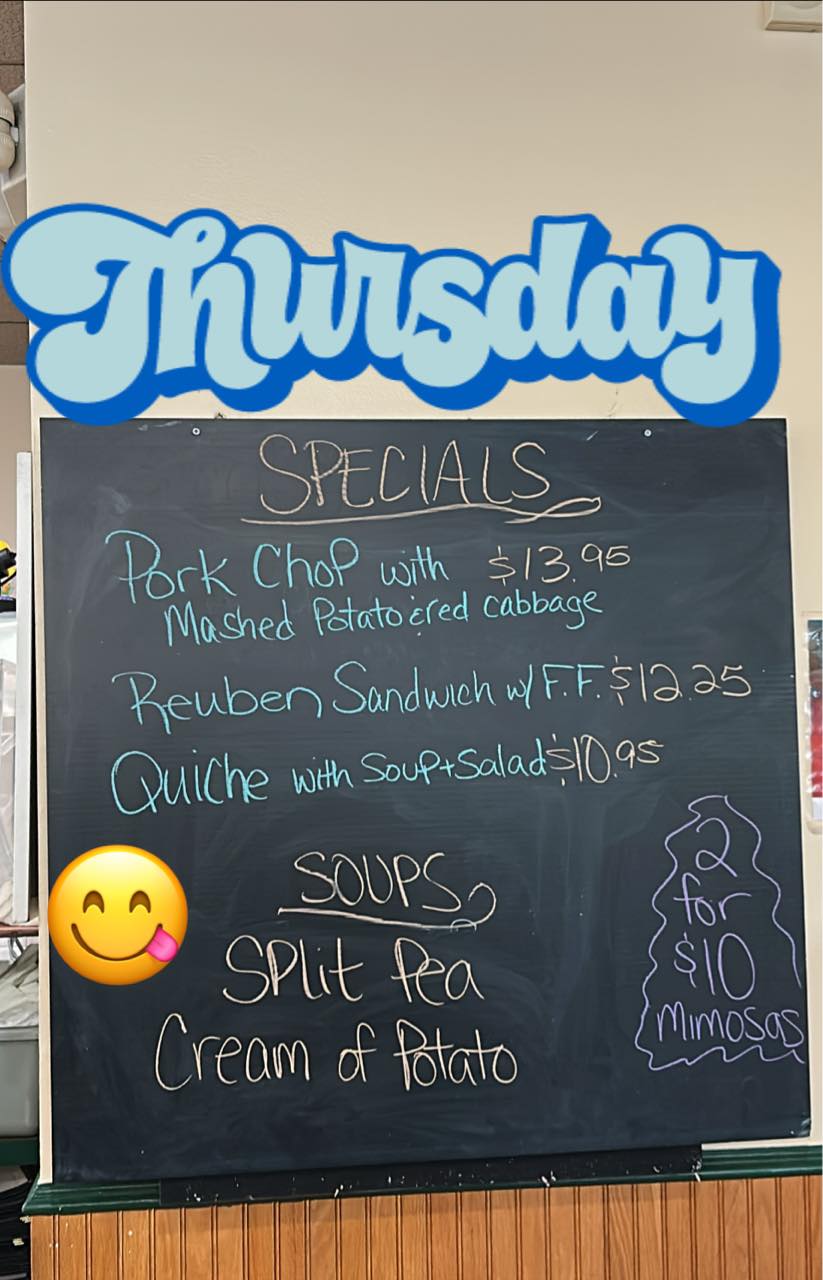 Thursday
SPECIALS
Pork Chop with $13.95
Mashed Potato & red cabbage
Reuben Sandwich w/ F.F. $12.25
Quiche with Soup + Salad $10.95
SOUPS
Split Pea
Cream of Potato
2
for
$10
Mimosas